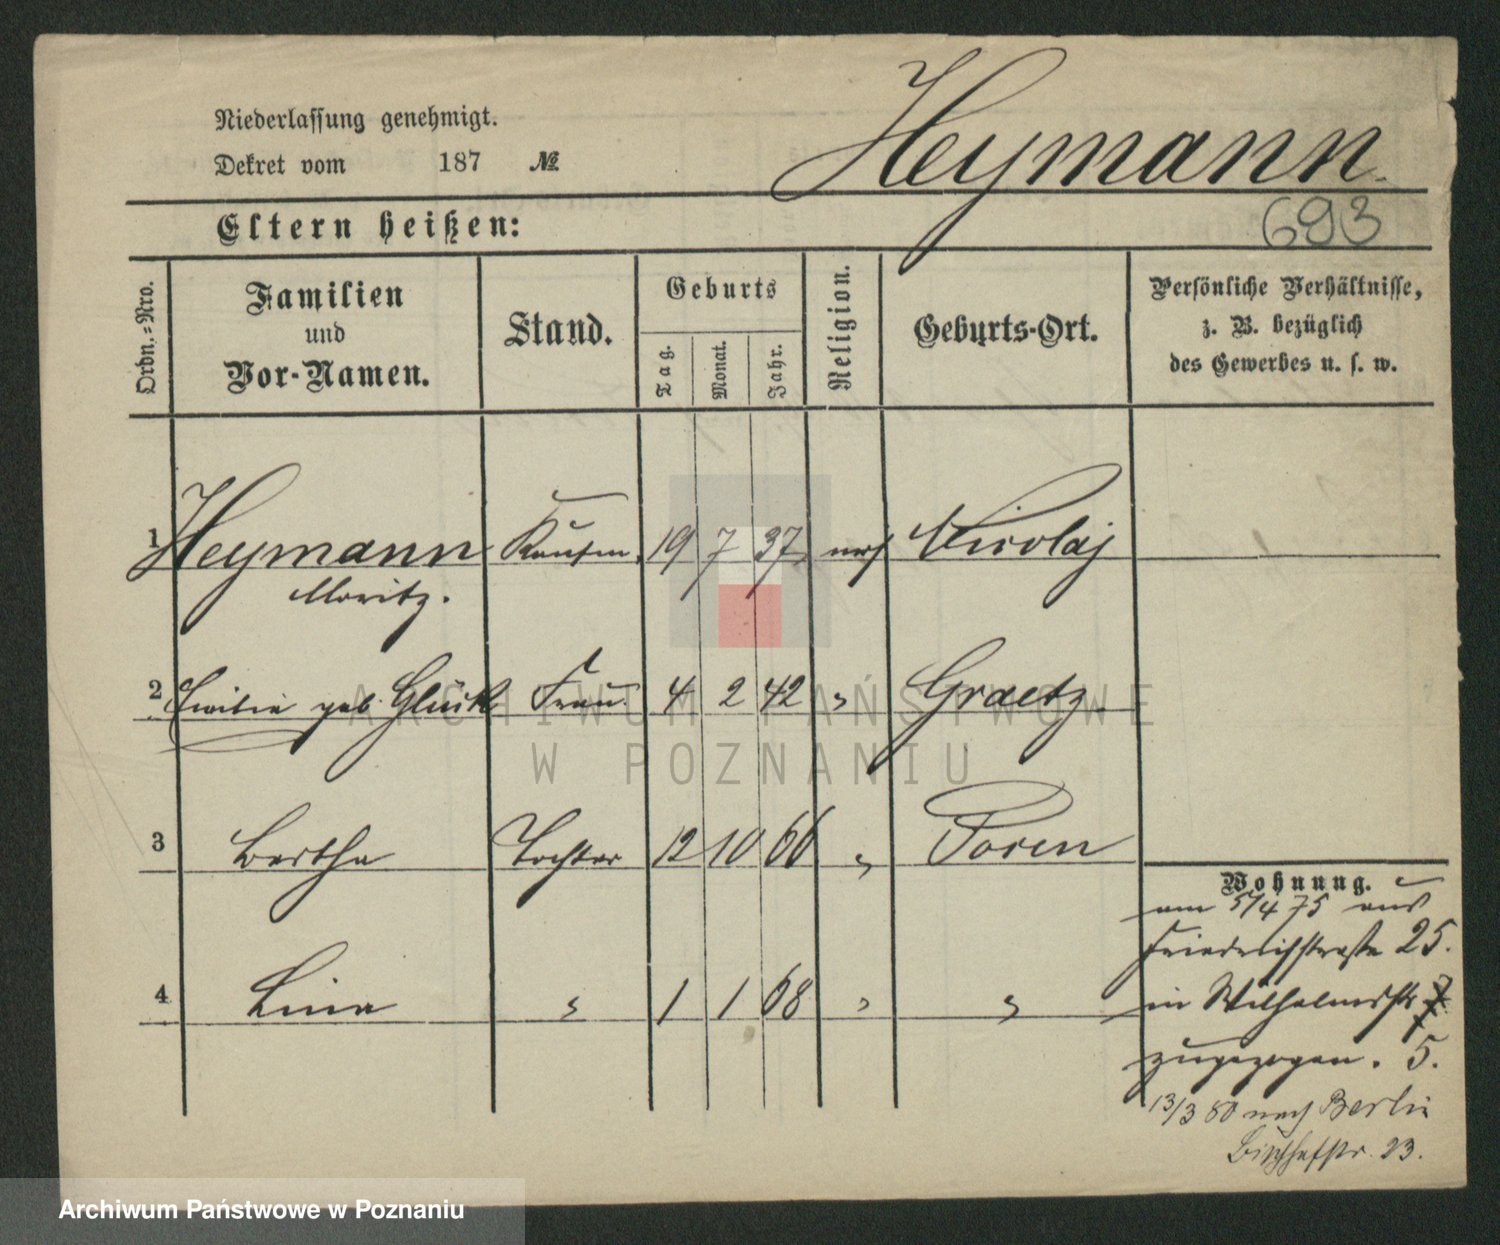 Niederlassung genehmigt.
Dekret vom 187 №
Heymann.
693
Eltern heißen:
Ordn.-Nro.
Familien
und
Vor-Namen.
Stand.
Geburts
Tag.
Monat.
Jahr.
Religion.
Geburts-Ort.
Persönliche Verhältnisse,
z. B. bezüglich
des Gewerbes u. s. w.
1 Heymann Kaufm. 19 7 37 mos Nicolaj
Moritz.
2 geb. Glück Frau 4 2 42 " Graetz
3 Bertha Tochter 12 10 66 " Posen
4 Lina " 1 1 68 " "
Wohnung.
am 5/4 75 aus
Friedrichstraße 25.
in Wilhelmstr. 7
zugezogen. 5.
13/3 80 nach Berlin
Bischofstr. 23.
ARCHIWUM PAŃSTWOWE
W POZNANIU
Archiwum Państwowe w Poznaniu